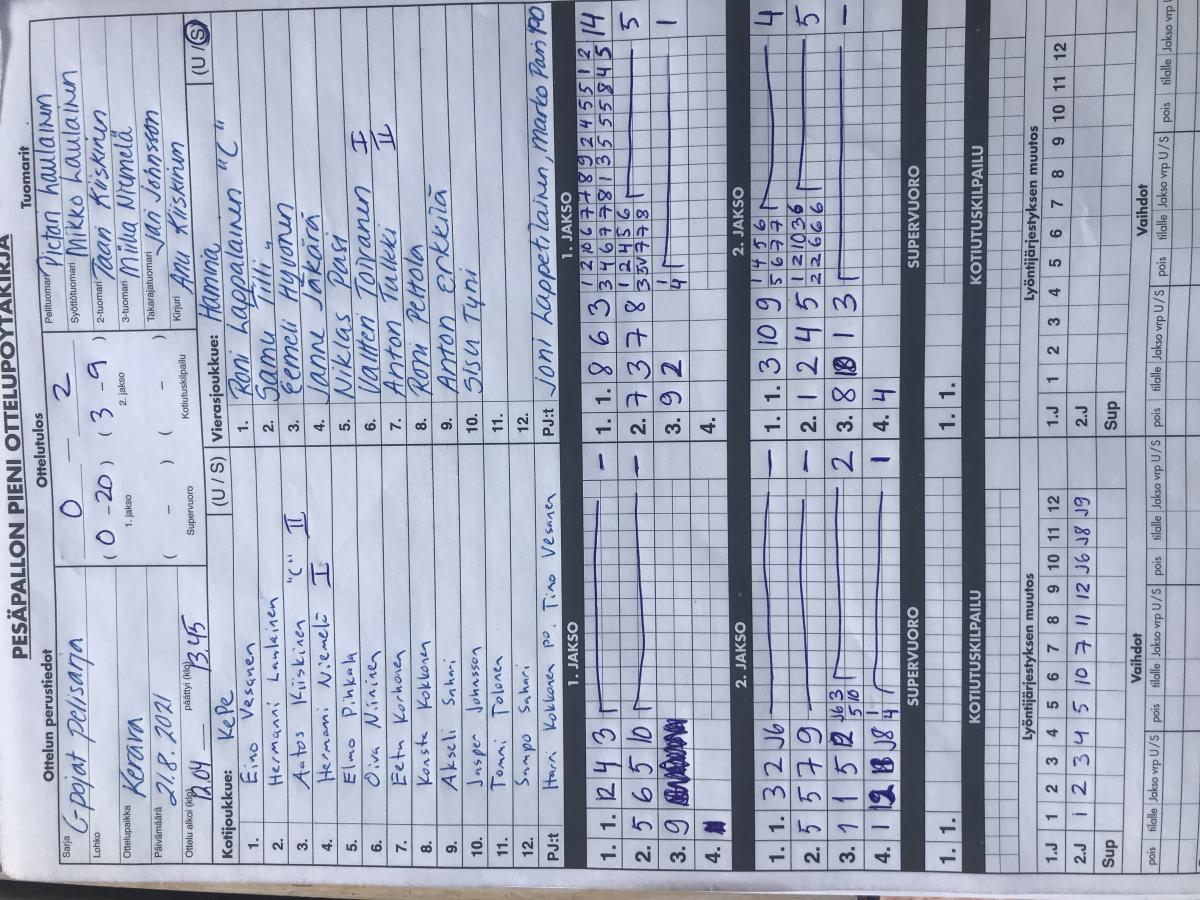 PESÄPALLON PIENI OTTELUPÖYTÄKIRJA
Ottelun perustiedot
Sarja G-pojat pelisarja
Lohko
Ottelupaikka Kerava
Päivämäärä 21.8.2021
Ottelu alkoi (klo) 12.04 päättyi (klo) 13.45
Ottelutulos
0 — 2
( 0 - 20 ) ( 3 - 9 )
1. jakso 2. jakso
( - ) ( - )
Supervuoro Kotiutuskilpailu
Tuomarit
Pelituomari
Syöttötuomari Mikko Laulainen
2-tuomari Taari Kiiskinen
3-tuomari Miika Niemelä
Takarajatuomari Jari Johnsson
Kirjuri Anu Kiiskinen
Kotijoukkue: KePe (U / S)
1. Eino Vesanen
2. Hermanni Laulainen
3. Aatos Kiiskinen "C" II
4. Hermanni Niemelä I
5. Elmo Pihkala
6. Oiva Nininen
7. Eetu Korhonen
8. Konsta Kokkonen
9. Akseli Suhari
10. Jasper Johnsson
11. Tommi Tolonen
12. Sampo Suhari
PJ:t Harri Kokkonen po, Timo Vesanen
Vierasjoukkue: Hamina (U / S)
1. Roni Lappalainen "C"
2. Samu Tilli
3. Eemeli Hyvönen
4. Janne Jäkärä
5. Niklas Pasi
6. Valtteri Toivanen I
7. Anton Tulkki II
8. Roni Peltola
9. Anton Erkkilä
10. Sisu Tyni
11.
12.
PJ:t Joni Lappetilainen, Marko Pari po
1. JAKSO
1. 1. 12 4 3 —
2. 5 6 5 10 —
3. 9
4.
1. JAKSO
1. 1. 8 6 3 1 2 10 6 7 7 8 9 2 4 5 5 1 2 14
3 4 6 7 7 8 1 3 5 5 5 8 4 5
2. 7 3 7 8 1 2 4 5 6 5
3 3V 7 7 8
3. 9 2 1 1
4
4.
2. JAKSO
1. 1. 3 2 J6 —
2. 5 7 9 —
3. 1 5 12 J6 3 2
5 10
4. 1 J8 1 1
4
2. JAKSO
1. 1. 3 10 9 1 4 5 6 4
5 6 7 7
2. 1 2 4 5 1 2 10 3 6 5
2 2 6 6 6
3. 8 1 3 —
4. 4
SUPERVUORO
1. 1.
SUPERVUORO
1. 1.
KOTIUTUSKILPAILU
KOTIUTUSKILPAILU
Lyöntijärjestyksen muutos
1.J 1 2 3 4 5 6 7 8 9 10 11 12
2.J 1 2 3 4 5 10 7 11 12 J6 J8 J9
Sup
Lyöntijärjestyksen muutos
1.J 1 2 3 4 5 6 7 8 9 10 11 12
2.J
Sup
Vaihdot
pois tilalle Jakso vrp U / S pois tilalle Jakso vrp U / S pois tilalle Jakso vrp U / S
Vaihdot
pois tilalle Jakso vrp U / S pois tilalle Jakso vrp U / S pois tilalle Jakso vrp U